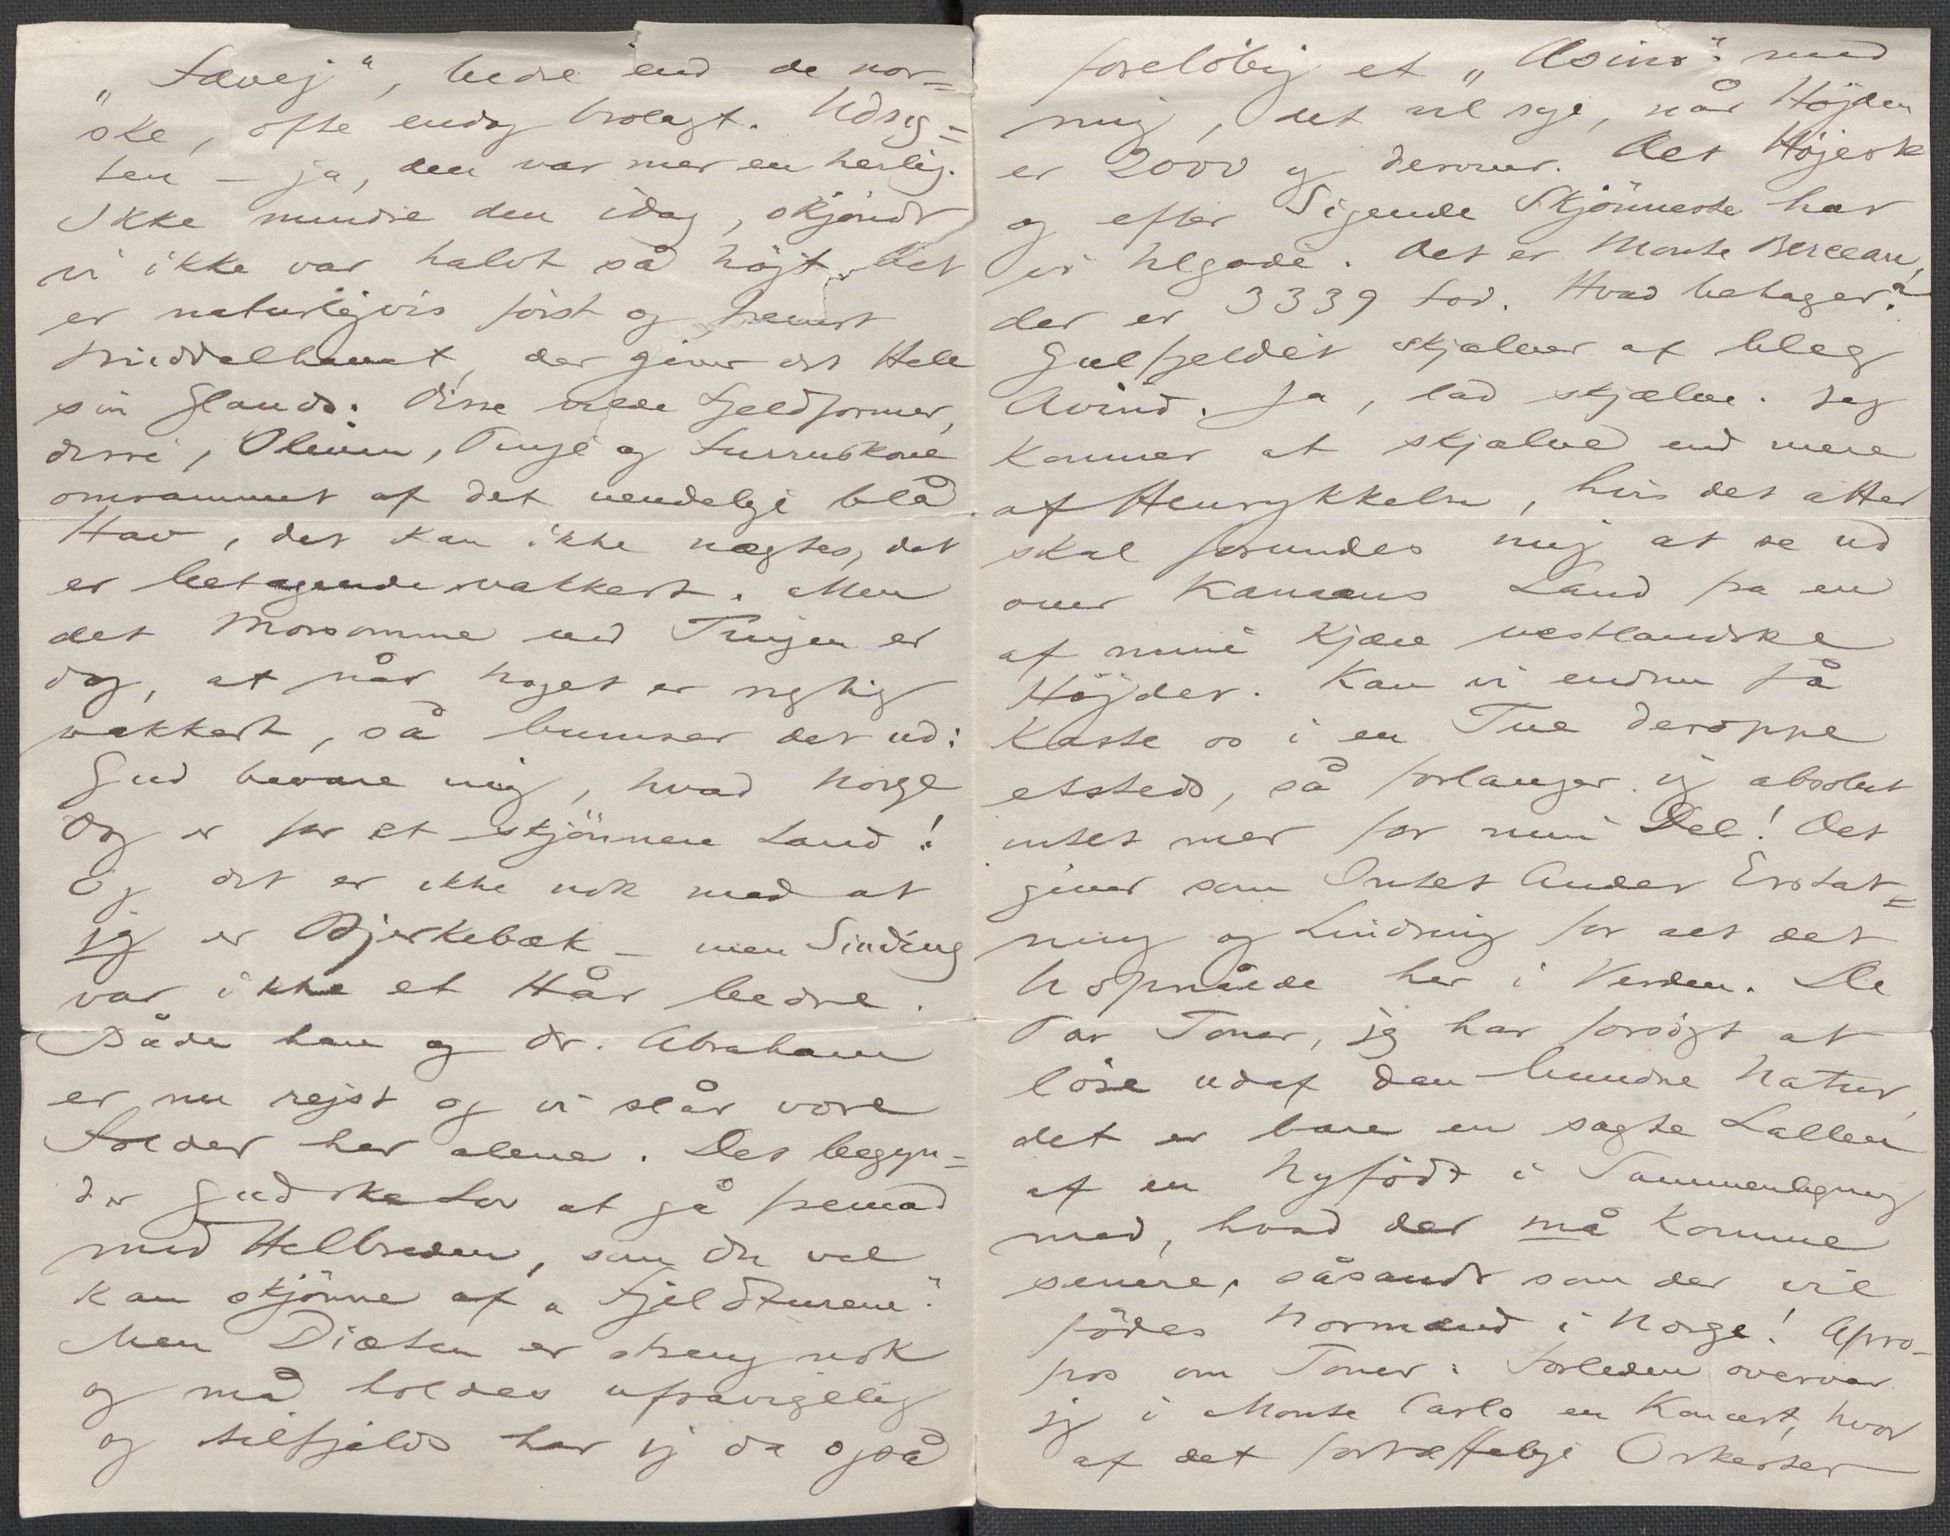 „Fævej“, bedre end de nor=
ske, ofte endog brolagt. Udsig=
ten – ja, den var mer en herlig.
Ikke mindre den idag, skjöndt
vi ikke var halvt så höjt. Det
er naturligvis först og fremst
Middelhavet, der giver det Hele
sin Glands. Disse vilde Fjeldformer,
disse, Oliven, Pinje og Furruskove
omrammet af det uendelige blå
Hav, det kan ikke nægtes, det
er betagende vakkert. Men
det Morsomme ved Tingen er
dog, at når noget er rigtig
vakkert, så bumser det ud:
Gud bevare mig, hvad Norge
dog er for et skjönnere Land!
Og det er ikke nok med at
jeg er Bjerkebæk – men Sinding
var ikke et Hår bedre.
Både han og Dr. Abraham
er nu rejst og vi slår vore
Folder her alene. Det begyn=
der Gudskelov at gå fremad
med Helbreden, som Du vel
kan skjönne af „Fjeldturene“.
Men Diæten er streng nok
og må holdes ufravigelig
og tilfjelds har jeg da også
foreløbig et „Asino“ med
mig, det vil sige, når Höjden
er 2000 og derover. Det Höjeste
og efter Sigende Skjönneste har
vi tilgode. Det er Monte Berceau,
der er 3339 Fod. Hvad behager?
Gulfjeldet skjælver af bleg
Avind. Ja, lad skjælve. Jeg
kommer at skjælve end mere
af Henrykkelse, hvis det atter
skal forundes mig at se ud
over Kanaans Land fra en
af mine kjære vestlandske
Höjder. Kan vi endnu få
kaste os i en Tue deroppe
etsteds, så forlanger jeg absolut
intet mer for min Del! Det
giver som Intet Andet Erstat=
ning og Lindring for alt det
Uopnåede her i Verden. De
Par Toner, jeg har forsögt at
löse udaf den bundne Natur,
det er bare en sagte Lallen
af en Nyfödt i Sammenligning
med, hvad der må komme
senere, såsandt som der vil
födes Normænd i Norge! Apro-
pos om Toner: Forleden overvar
jeg i Monte Carlo en Koncert, hvor
af det fortræffelige Orkester